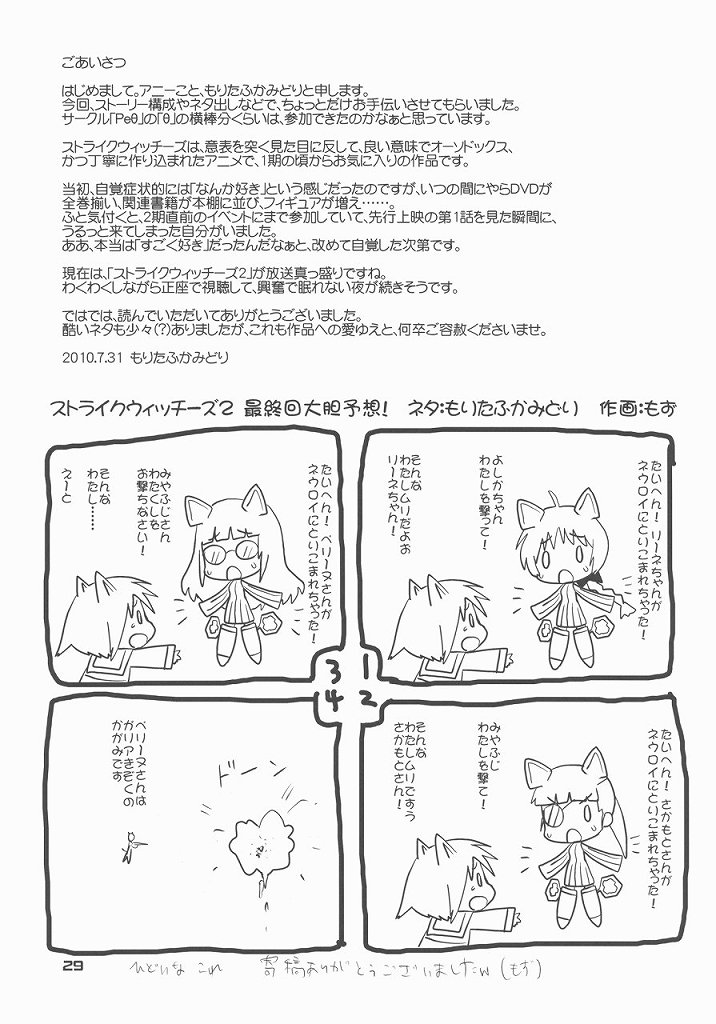 ごあいさつ
はじめまして。アニーこと、もりたふかみどりと申します。
今回、ストーリー構成やネタ出しなどで、ちょっとだけお手伝いさせてもらいました。
サークル「Peθ」の「θ」の横棒分くらいは、参加できたのかなぁと思っています。
ストライクウィッチーズは、意表を突く見た目に反して、良い意味でオーソドックス、
かつ丁寧に作り込まれたアニメで、1期の頃からお気に入りの作品です。
当初、自覚症状的には「なんか好き」という感じだったのですが、いつの間にやらDVDが
全巻揃い、関連書籍が本棚に並び、フィギュアが増え……。
ふと気付くと、2期直前のイベントにまで参加していて、先行上映の第1話を見た瞬間に、
うるっと来てしまった自分がいました。
ああ、本当は「すごく好き」だったんだなぁと、改めて自覚した次第です。
現在は、「ストライクウィッチーズ2」が放送真っ盛りですね。
わくわくしながら正座で視聴して、興奮で眠れない夜が続きそうです。
ではでは、読んでいただいてありがとうございました。
酷いネタも少々(?)ありましたが、これも作品への愛ゆえと、何卒ご容赦くださいませ。
2010.7.31 もりたふかみどり
ストライクウィッチーズ2 最終回大胆予想! ネタ:もりたふかみどり 作画:もず
1
たいへん! リーネちゃんが
ネウロイにとりこまれちゃった!
よしかちゃん
わたしを撃って!
そんな
わたしムリだよぉ
リーネちゃん!
2
たいへん! さかもとさんが
ネウロイにとりこまれちゃった!
みやふじ
わたしを撃て!
そんな
わたしムリですぅ
さかもとさん!
3
たいへん! ペリーヌさんが
ネウロイにとりこまれちゃった!
みやふじさん
わたくしを
お撃ちなさい!
そんな
わたし……
えーと
4
ドーン
ペリーヌさんは
ガリアきぞくの
かがみです
29
ひどいな これ 寄稿ありがとうございましたw (もず)